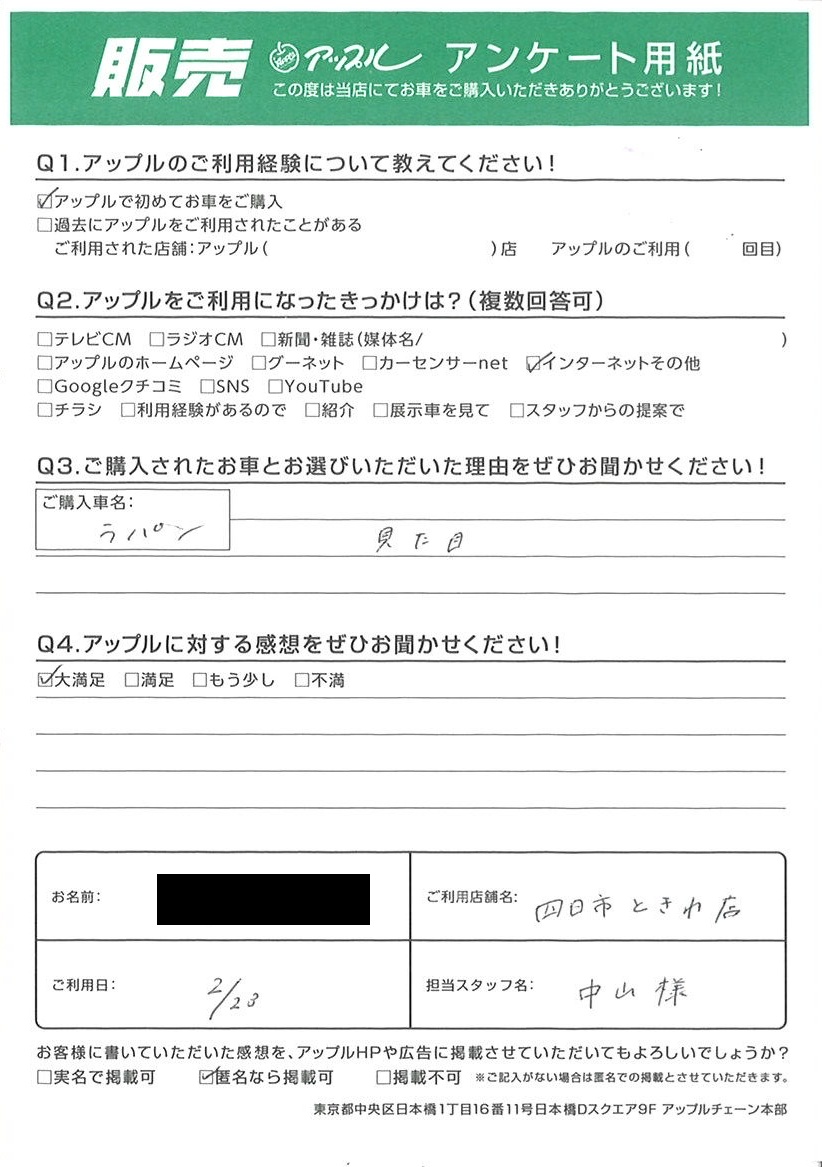 販売 アップル アンケート用紙
この度は当店にてお車をご購入いただきありがとうございます!
Q1.アップルのご利用経験について教えてください!
☑アップルで初めてお車をご購入
□過去にアップルをご利用されたことがある
ご利用された店舗:アップル( )店 アップルのご利用( 回目)
Q2.アップルをご利用になったきっかけは?(複数回答可)
□テレビCM □ラジオCM □新聞・雑誌(媒体名/ )
□アップルのホームページ □グーネット □カーセンサーnet ☑インターネットその他
□Googleクチコミ □SNS □YouTube
□チラシ □利用経験があるので □紹介 □展示車を見て □スタッフからの提案で
Q3.ご購入されたお車とお選びいただいた理由をぜひお聞かせください!
ご購入車名:
ラパン
見た目
Q4.アップルに対する感想をぜひお聞かせください!
☑大満足 □満足 □もう少し □不満
お名前:
ご利用店舗名: 四日市ときわ店
ご利用日: 2/23
担当スタッフ名: 中山様
お客様に書いていただいた感想を、アップルHPや広告に掲載させていただいてもよろしいでしょうか?
□実名で掲載可 ☑匿名なら掲載可 □掲載不可 ※ご記入がない場合は匿名での掲載とさせていただきます。
東京都中央区日本橋1丁目16番11号日本橋Dスクエア9F アップルチェーン本部